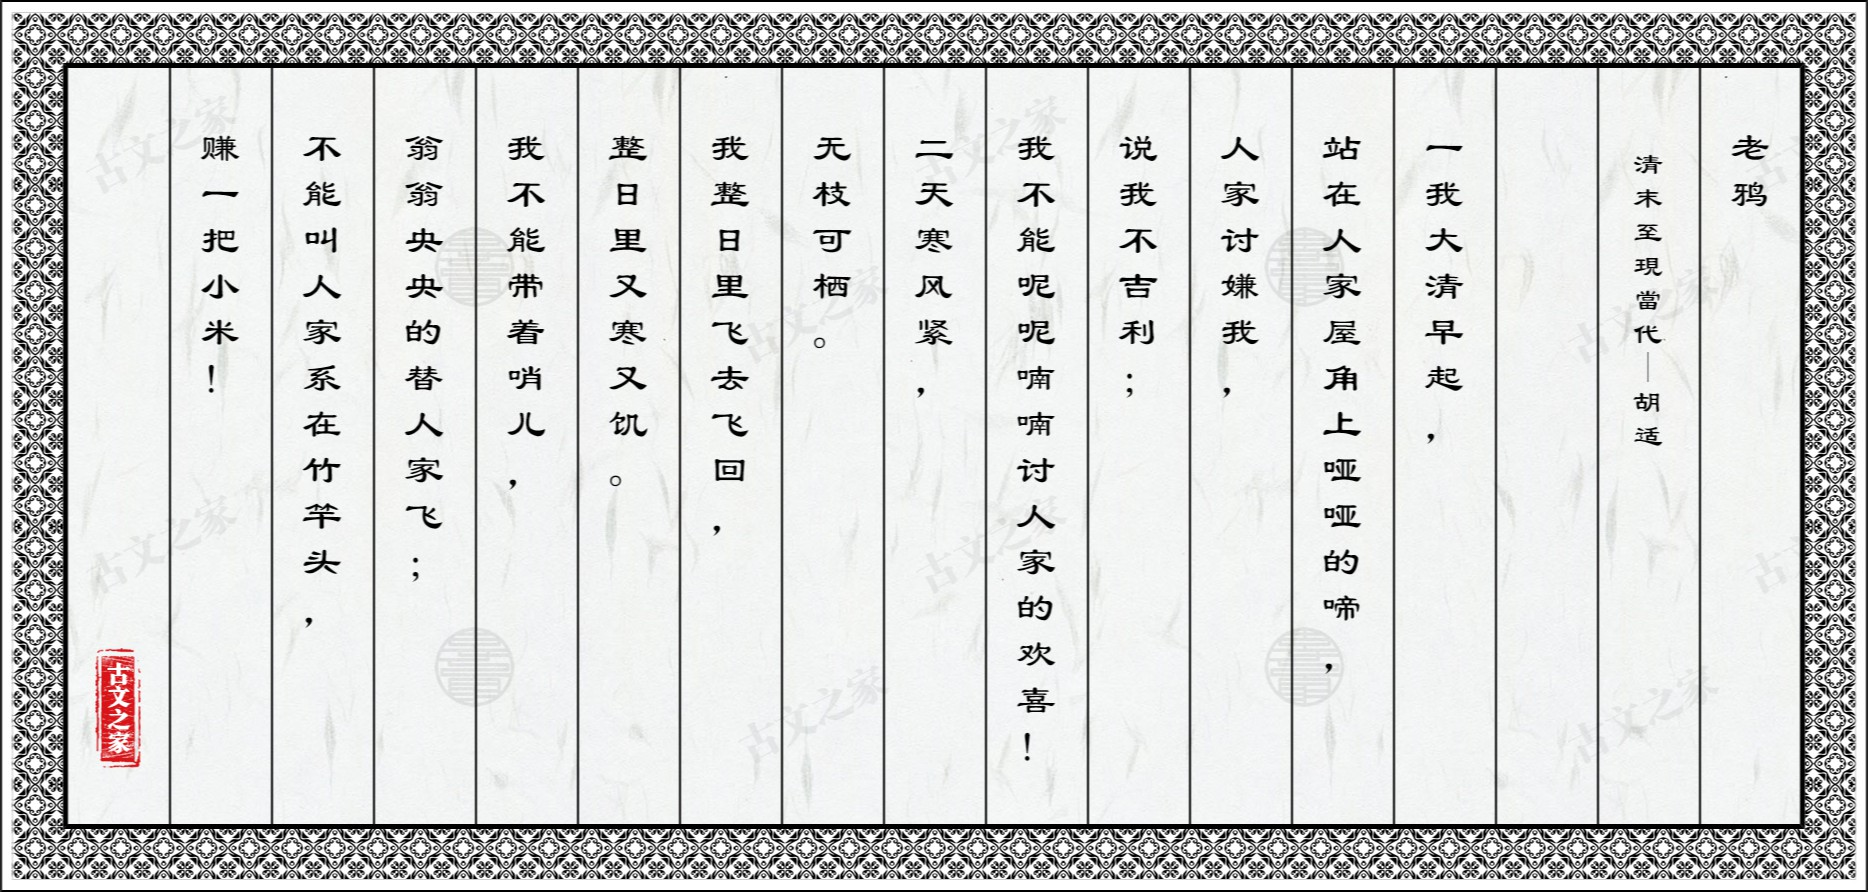 老鸦
清末至現當代——胡适
一我大清早起，
站在人家屋角上哑哑的啼，
人家讨嫌我，
说我不吉利；
我不能呢呢喃喃讨人家的欢喜！
二天寒风紧，
无枝可栖。
我整日里飞去飞回，
整日里又寒又饥。
我不能带着哨儿，
翁翁央央的替人家飞；
不能叫人家系在竹竿头，
赚一把小米！
古文之家